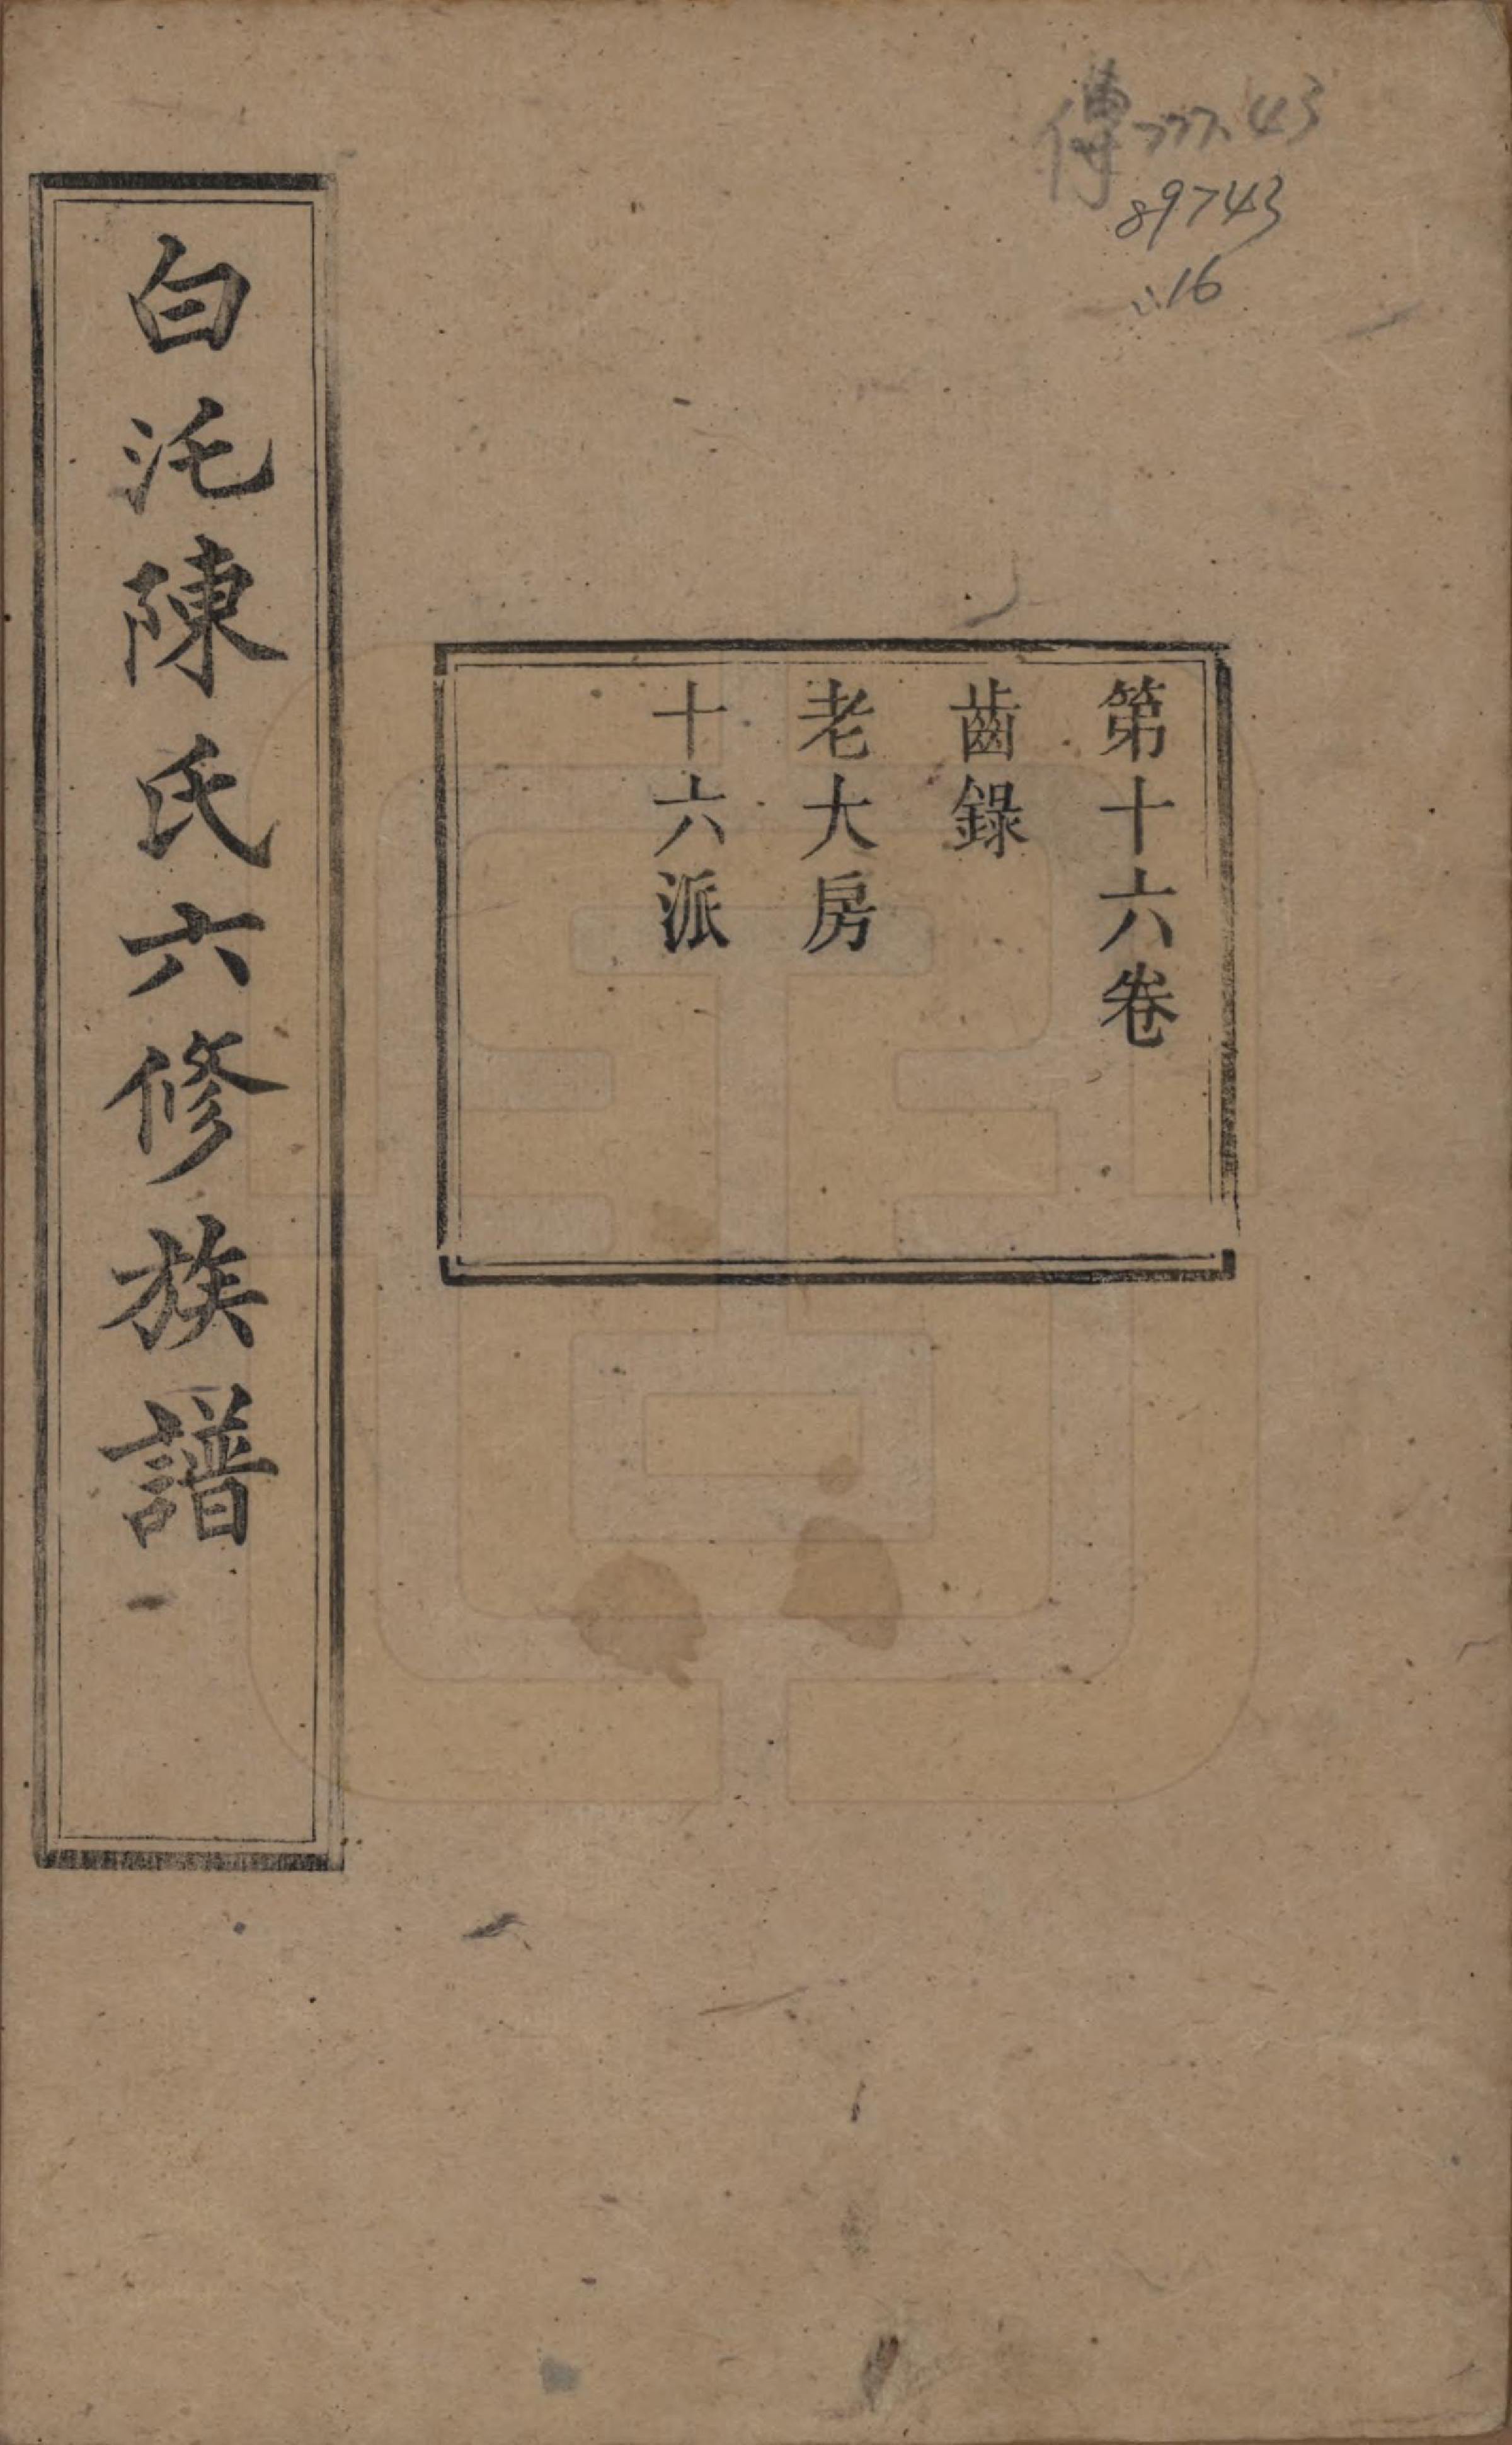 傳777.43
89743
:16
第十六卷
齒錄
老大房
十六派
白沱陳氏六修族譜